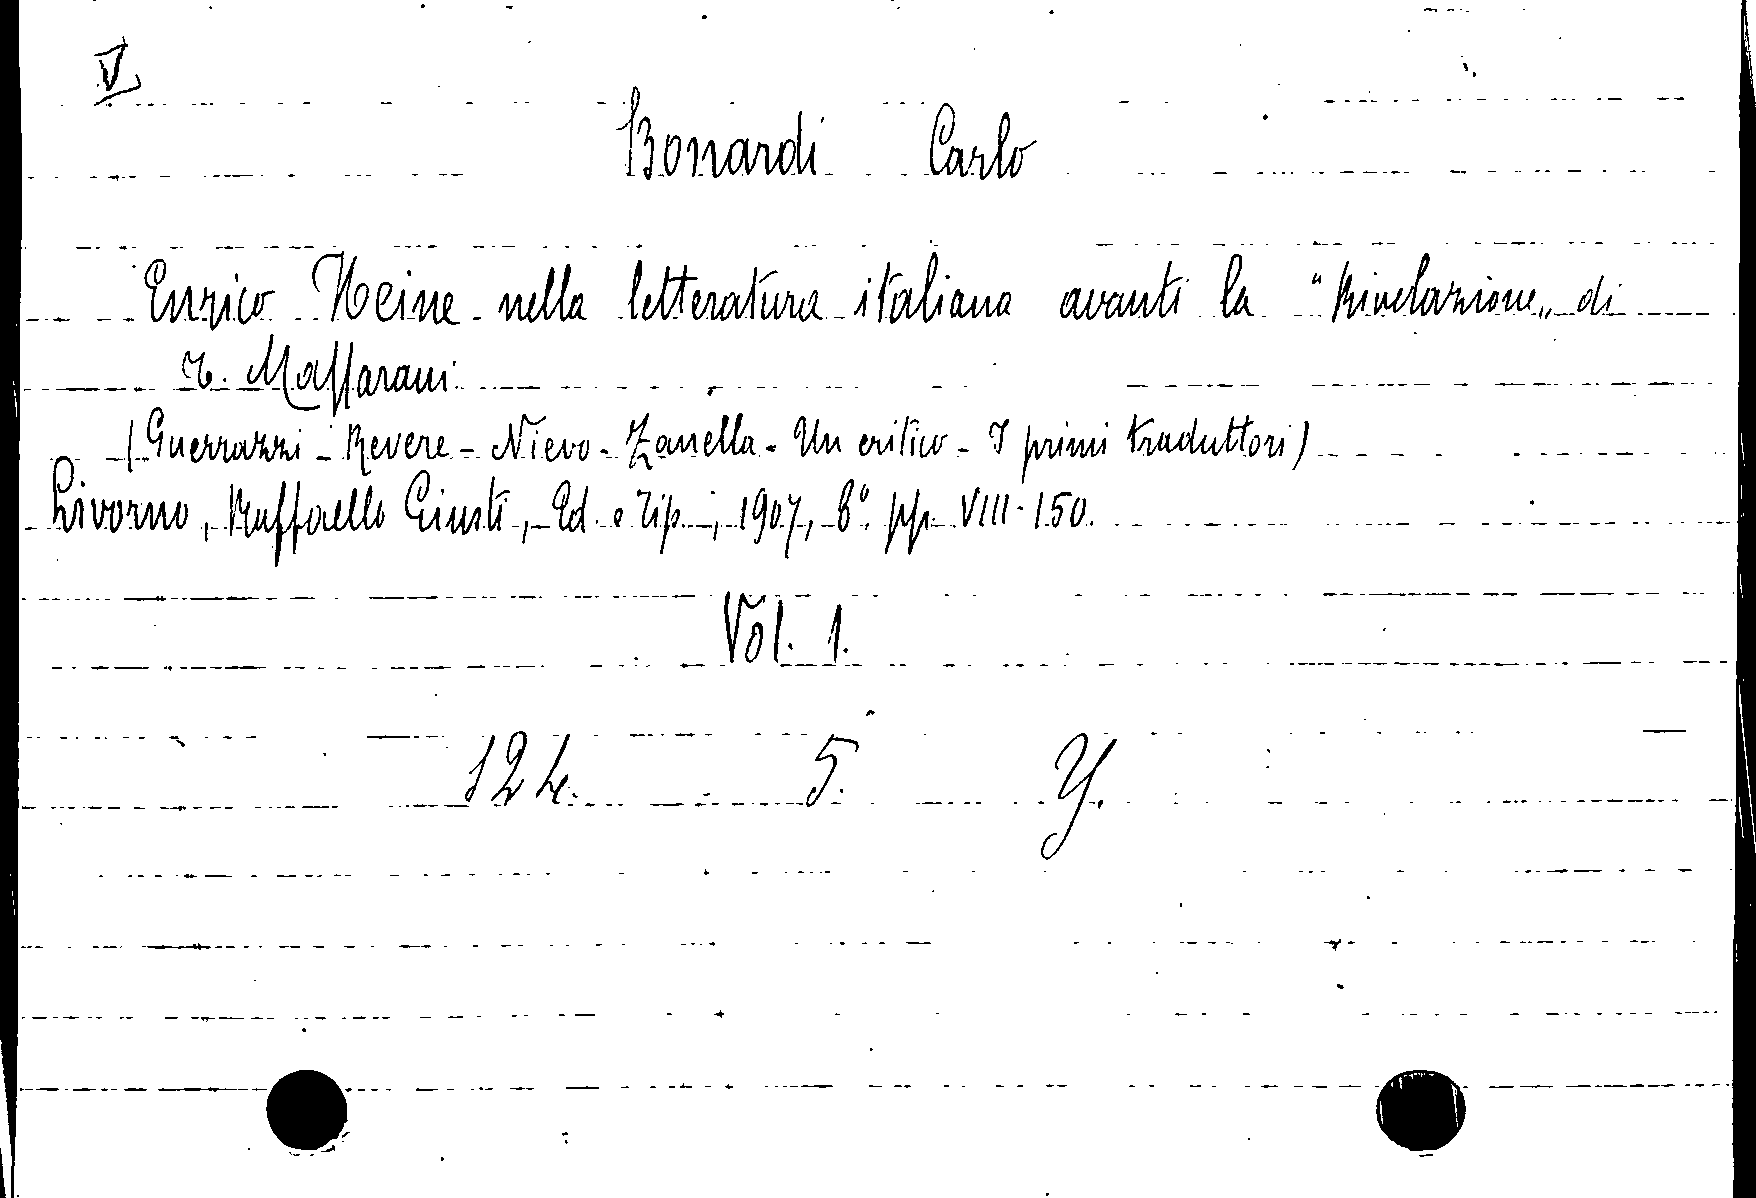 V
Bonardi Carlo
Enrico Heine nella letteratura italiana avanti la "Rivelazione„ di
T. Massarani
(Guerrazzi - Revere - Nievo - Zanella - Un critico - I primi traduttori)
Livorno, Raffaello Giusti, Ed. e Tip., 1907, 8°. pp. VIII-150.
Vol. 1.
124. 5. Y.